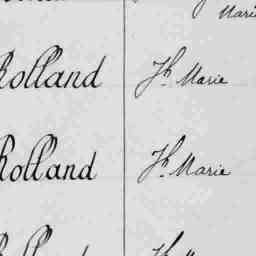 Marie
Rolland Jh Marie
Rolland Jh Marie